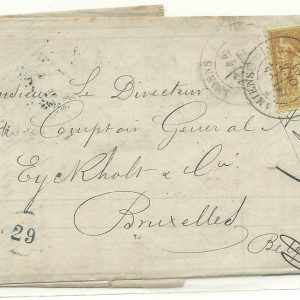 Monsieur Le Directeur
Comptoir General
Eyckholt & Cie
Bruxelles
29
AMIENS